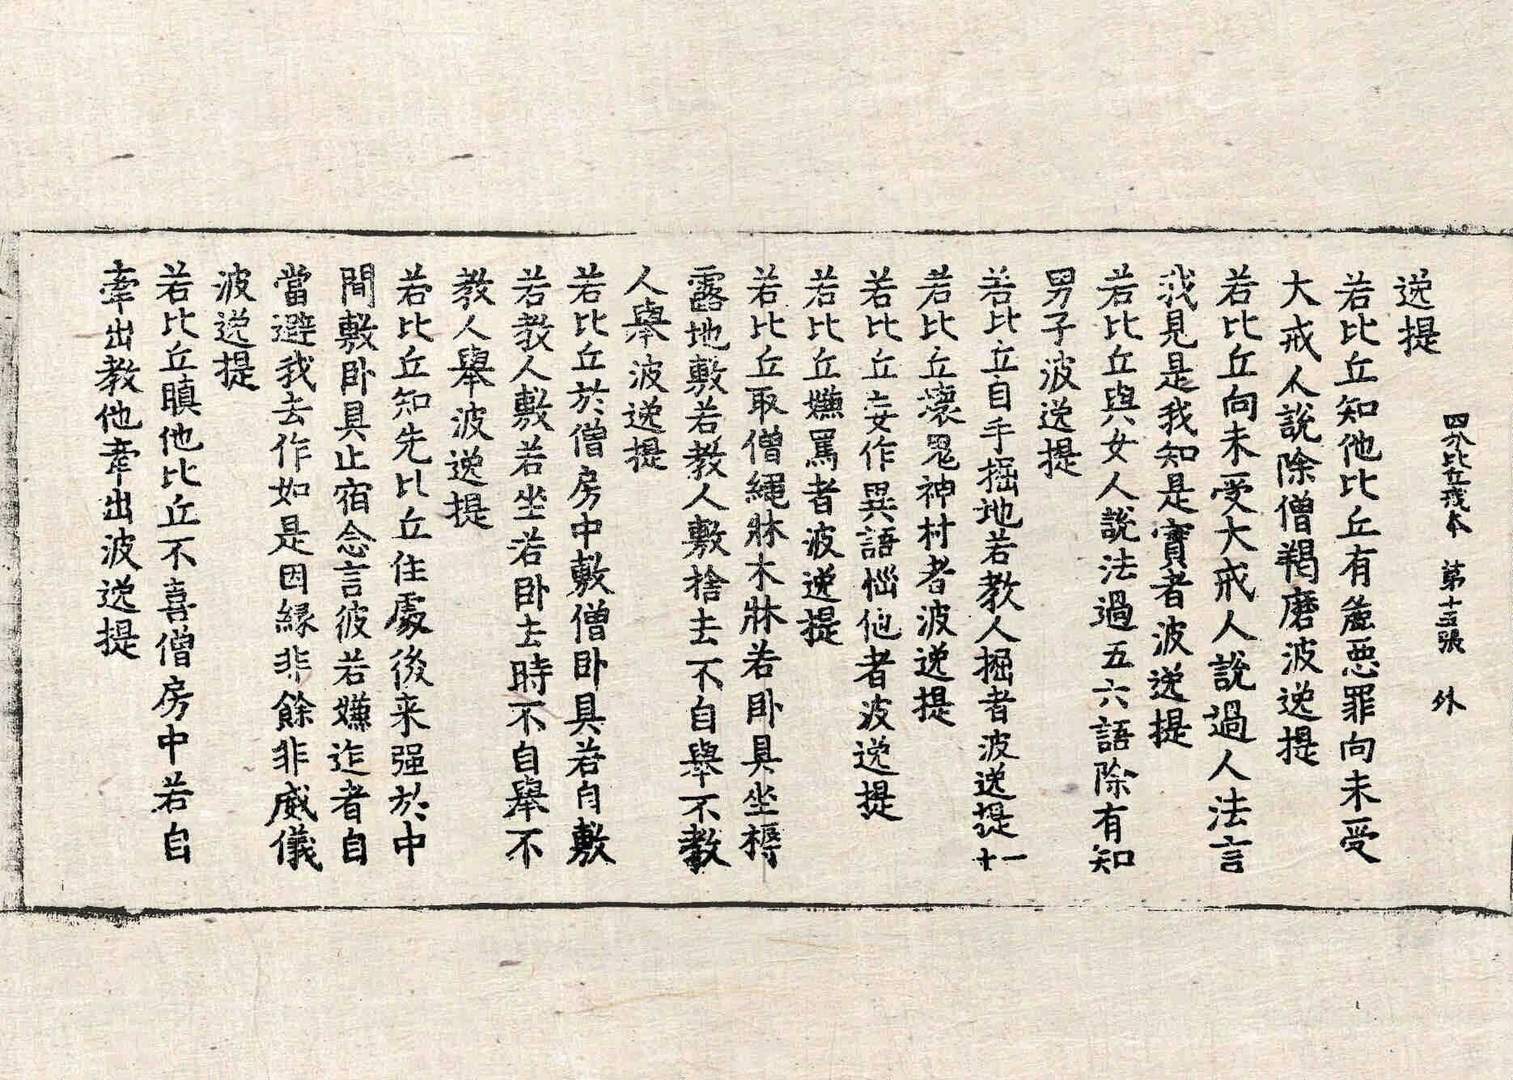 四分比丘戒本 第十三張 外
逸提
若比丘知他比丘有麁惡罪向未受
大戒人說除僧羯磨波逸提
若比丘向未受大戒人說過人法言
我見是我知是實者波逸提
若比丘與女人說法過五六語除有知
男子波逸提
若比丘自手掘地若教人掘者波逸提十一
若比丘壞鬼神村者波逸提
若比丘妄作異語惱他者波逸提
若比丘嫌罵者波逸提
若比丘取僧繩牀木牀若卧具坐褥
露地敷若教人敷捨去不自舉不教
人舉波逸提
若比丘於僧房中敷僧卧具若自敷
若教人敷若坐若卧去時不自舉不
教人舉波逸提
若比丘知先比丘住處後来强於中
間敷卧具止宿念言彼若嫌迮者自
當避我去作如是因緣非餘非威儀
波逸提
若比丘瞋他比丘不喜僧房中若自
牽出教他牽出波逸提